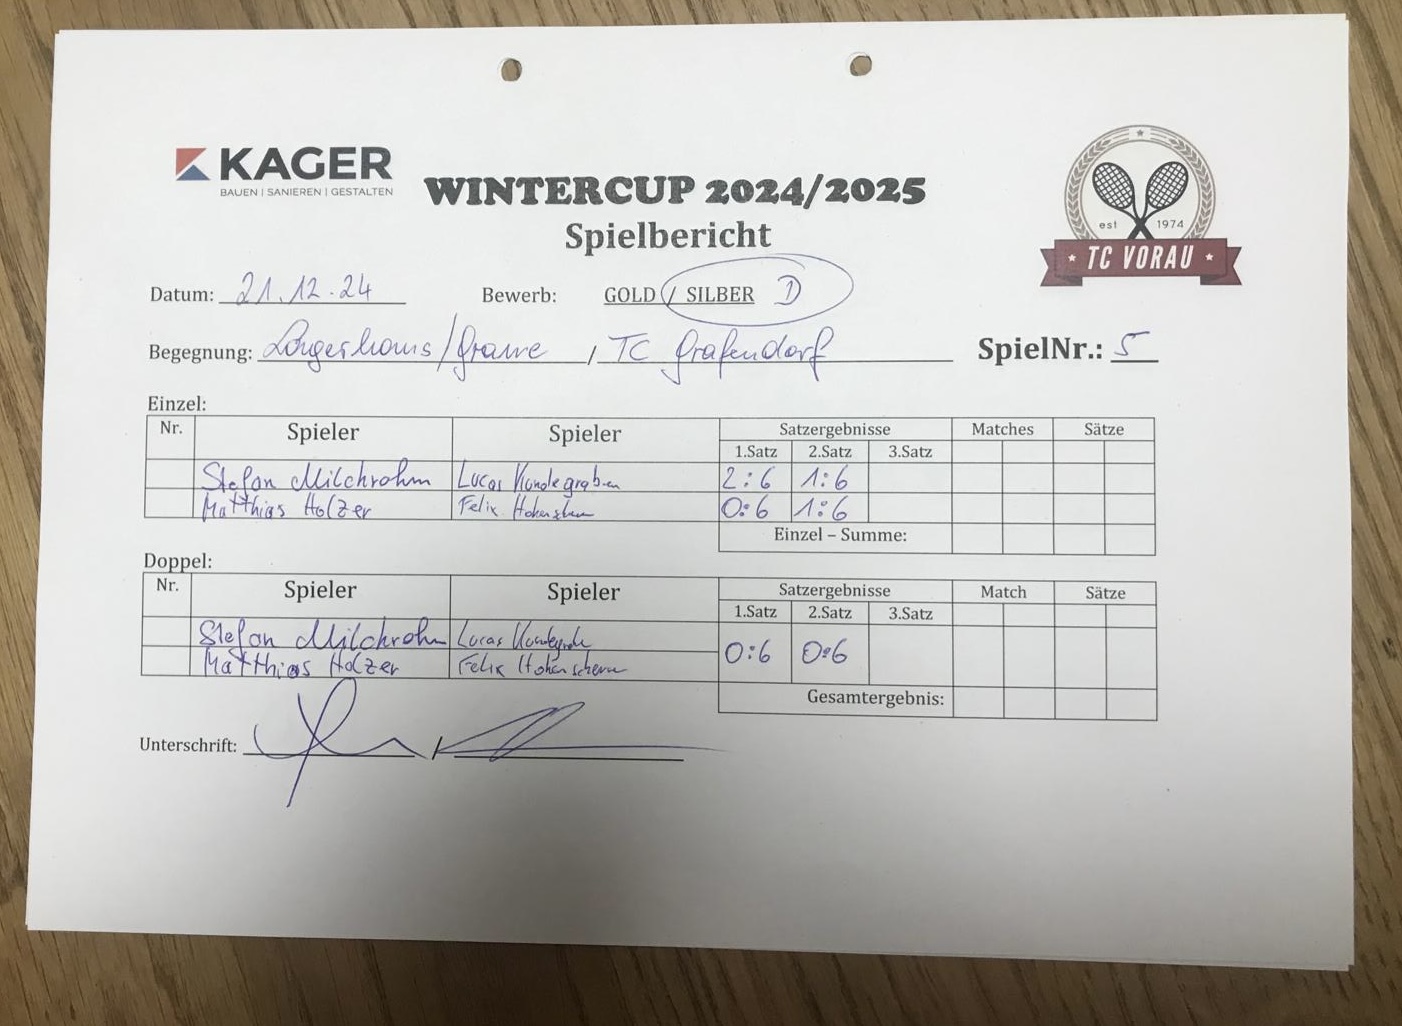 KAGER
BAUEN | SANIEREN | GESTALTEN
WINTERCUP 2024/2025
Spielbericht
est 1974
* TC VORAU *
Datum: 21.12.24 Bewerb: GOLD / SILBER D
Begegnung: / TC Grafendorf SpielNr.: 5
Einzel:
Nr. Spieler Spieler Satzergebnisse Matches Sätze
1.Satz 2.Satz 3.Satz
Stefan Milchrahm Lucas 2:6 1:6
Matthias Holzer Felix 0:6 1:6
Einzel – Summe:
Doppel:
Nr. Spieler Spieler Satzergebnisse Match Sätze
1.Satz 2.Satz 3.Satz
Stefan Milchrahm Lucas
Matthias Holzer Felix 0:6 0:6
Gesamtergebnis:
Unterschrift: /